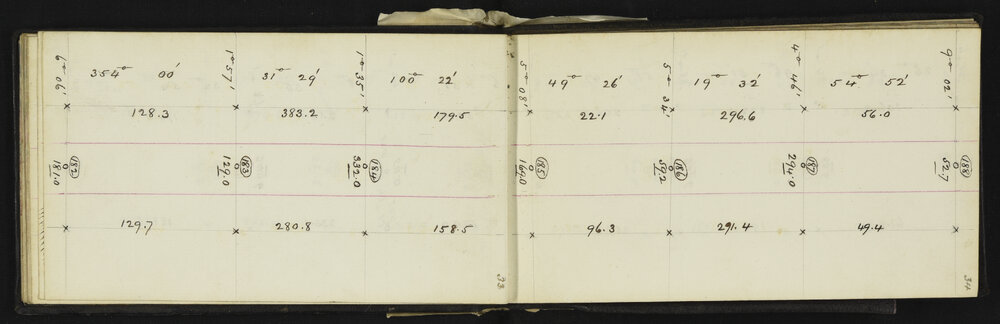 354° 00' 31° 29' 100° 22'
6° 06' 1° 57' 1° 35'
128.3 383.2 179.5
182 183 184
0 0 0
181.0 129.0 332.0
129.7 280.8 158.5
33
49° 26' 19° 32' 54° 52'
5° 08' 5° 34' 4° 46' 9° 02'
22.1 296.6 56.0
185 186 187 188
0 0 0 0
164.0 59.2 294.0 52.7
96.3 291.4 49.4
34